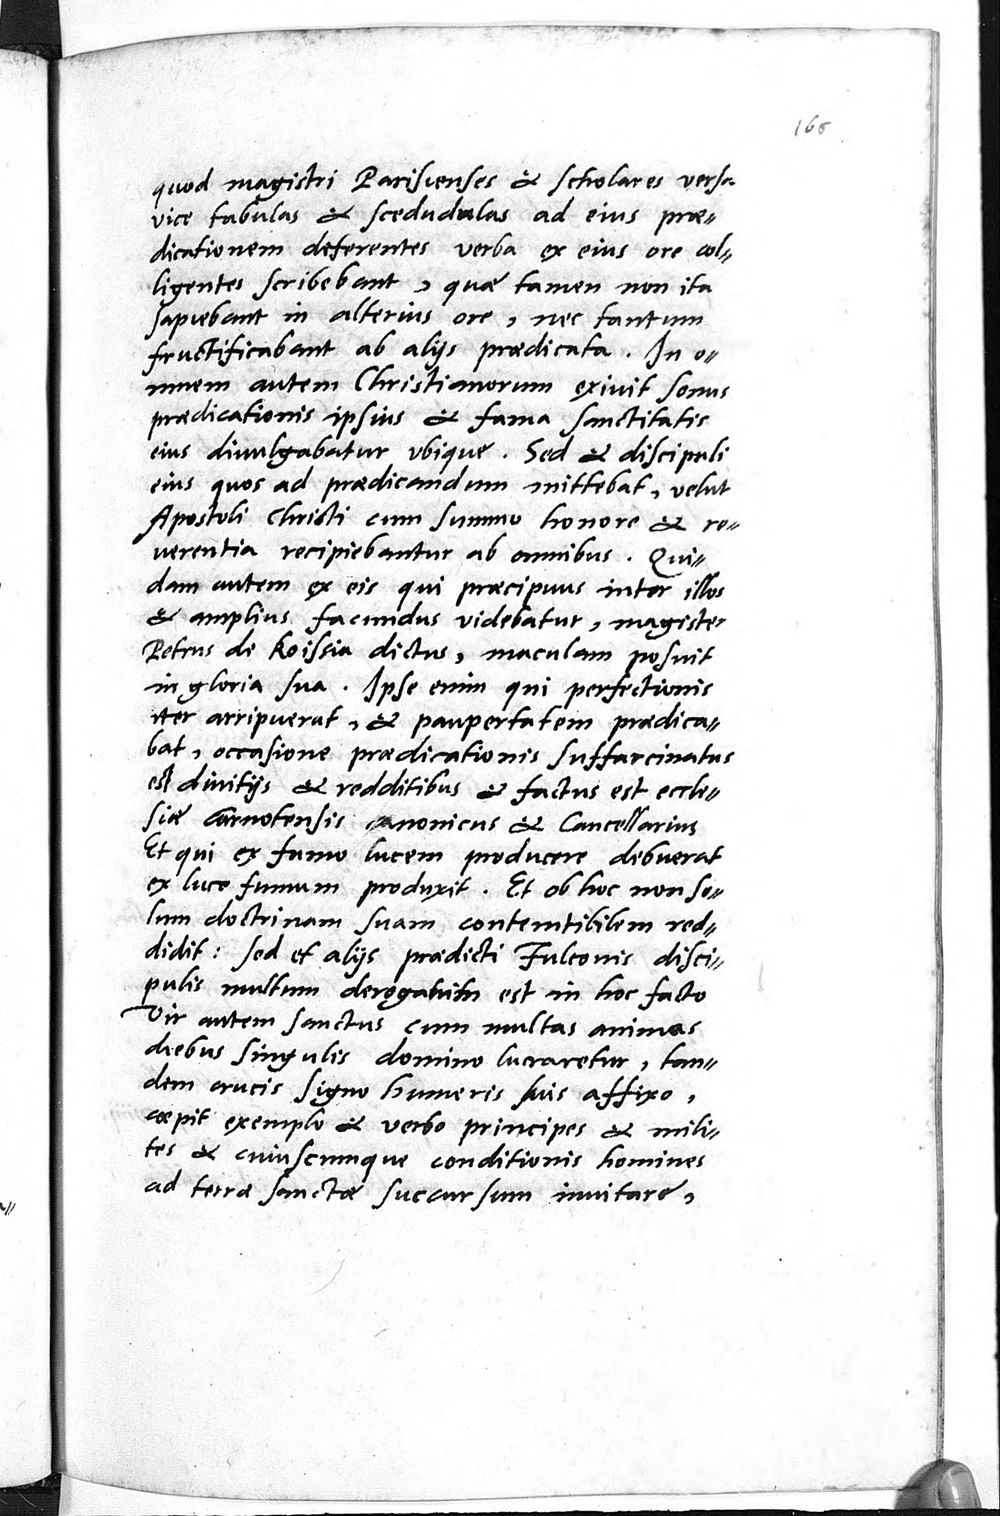 166
quod magistri Parisienses & scholares versa
vice tabulas & scedudulas ad eius præ„
dicationem deferentes verba ex eius ore col„
ligentes scribebant, quæ tamen non ita
sapiebant in alterius ore, nec tantum
fructificabant ab alijs prædicata. In o„
mnem autem Christianorum exivit sonus
prædicationis ipsius & fama sanctitatis
eius divulgabatur ubique. Sed & discipuli
eius quos ad prædicandum mittebat, velut
Apostoli Christi cum summo honore & re„
verentia recipiebantur ab omnibus. Qui„
dam autem ex eis qui præcipuus inter illos
& amplius facundus videbatur, magister
Petrus de Roissia dictus, maculam posuit
in gloria sua. Ipse enim qui perfectionis
iter arripuerat, & paupertatem prædica„
bat, occasione prædicationis suffarcinatus
est divitijs & redditibus & factus est eccle„
siæ Carnotensis canonicus & Cancellarius
Et qui ex fumo lucem producere debuerat
ex luce fumum produxit. Et ob hoc non so„
lum doctrinam suam contemtibilem red„
didit: sed et alijs prædicti Fulconis disci„
pulis multum derogatum est in hoc facto
Vir autem sanctus cum multas animas
diebus singulis domino lucraretur, tan„
dem crucis signo humeris suis affixo,
cæpit exemplo & verbo principes & mili„
tes & cuiuscumque conditionis homines
ad terræ sanctæ succursum invitare,